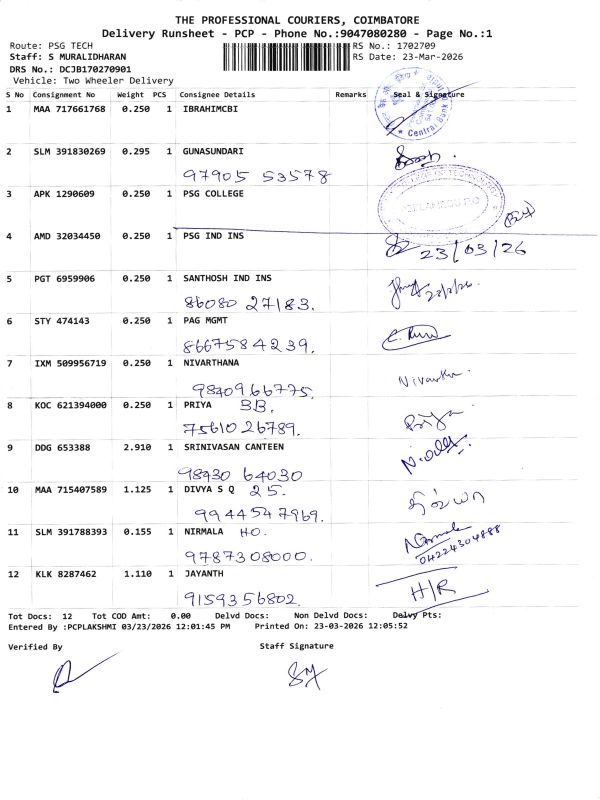 THE PROFESSIONAL COURIERS, COIMBATORE
Delivery Runsheet - PCP - Phone No.:9047080280 - Page No.:1
Route: PSG TECH
RS No.: 1702709
Staff: S MURALIDHARAN
RS Date: 23-Mar-2026
DRS No.: DCJB170270901
Vehicle: Two Wheeler Delivery
S No Consignment No Weight PCS Consignee Details Remarks Seal & Signature
1 MAA 717661768 0.250 1 IBRAHIMCBI
Central Bank
2 SLM 391830269 0.295 1 GUNASUNDARI
97905 53578
3 APK 1290609 0.250 1 PSG COLLEGE
4 AMD 32034450 0.250 1 PSG IND INS
23/03/26
5 PGT 6959906 0.250 1 SANTHOSH IND INS
86080 27183.
6 STY 474143 0.250 1 PAG MGMT
8667584239.
7 IXM 509956719 0.250 1 NIVARTHANA
Nivartha.
9840966775.
8 KOC 621394000 0.250 1 PRIYA BB.
Priya
7561026789.
9 DDG 653388 2.910 1 SRINIVASAN CANTEEN
98430 64030
10 MAA 715407589 1.125 1 DIVYA S Q 25.
திவ்யா
9944547969.
11 SLM 391788393 0.155 1 NIRMALA HO.
Nirmala
04224304888
9787308000.
12 KLK 8287462 1.110 1 JAYANTH
H/R
9159356802.
Tot Docs: 12 Tot COD Amt: 0.00 Delvd Docs: Non Delvd Docs: Delvy Pts:
Entered By :PCPLAKSHMI 03/23/2026 12:01:45 PM Printed On: 23-03-2026 12:05:52
Verified By Staff Signature